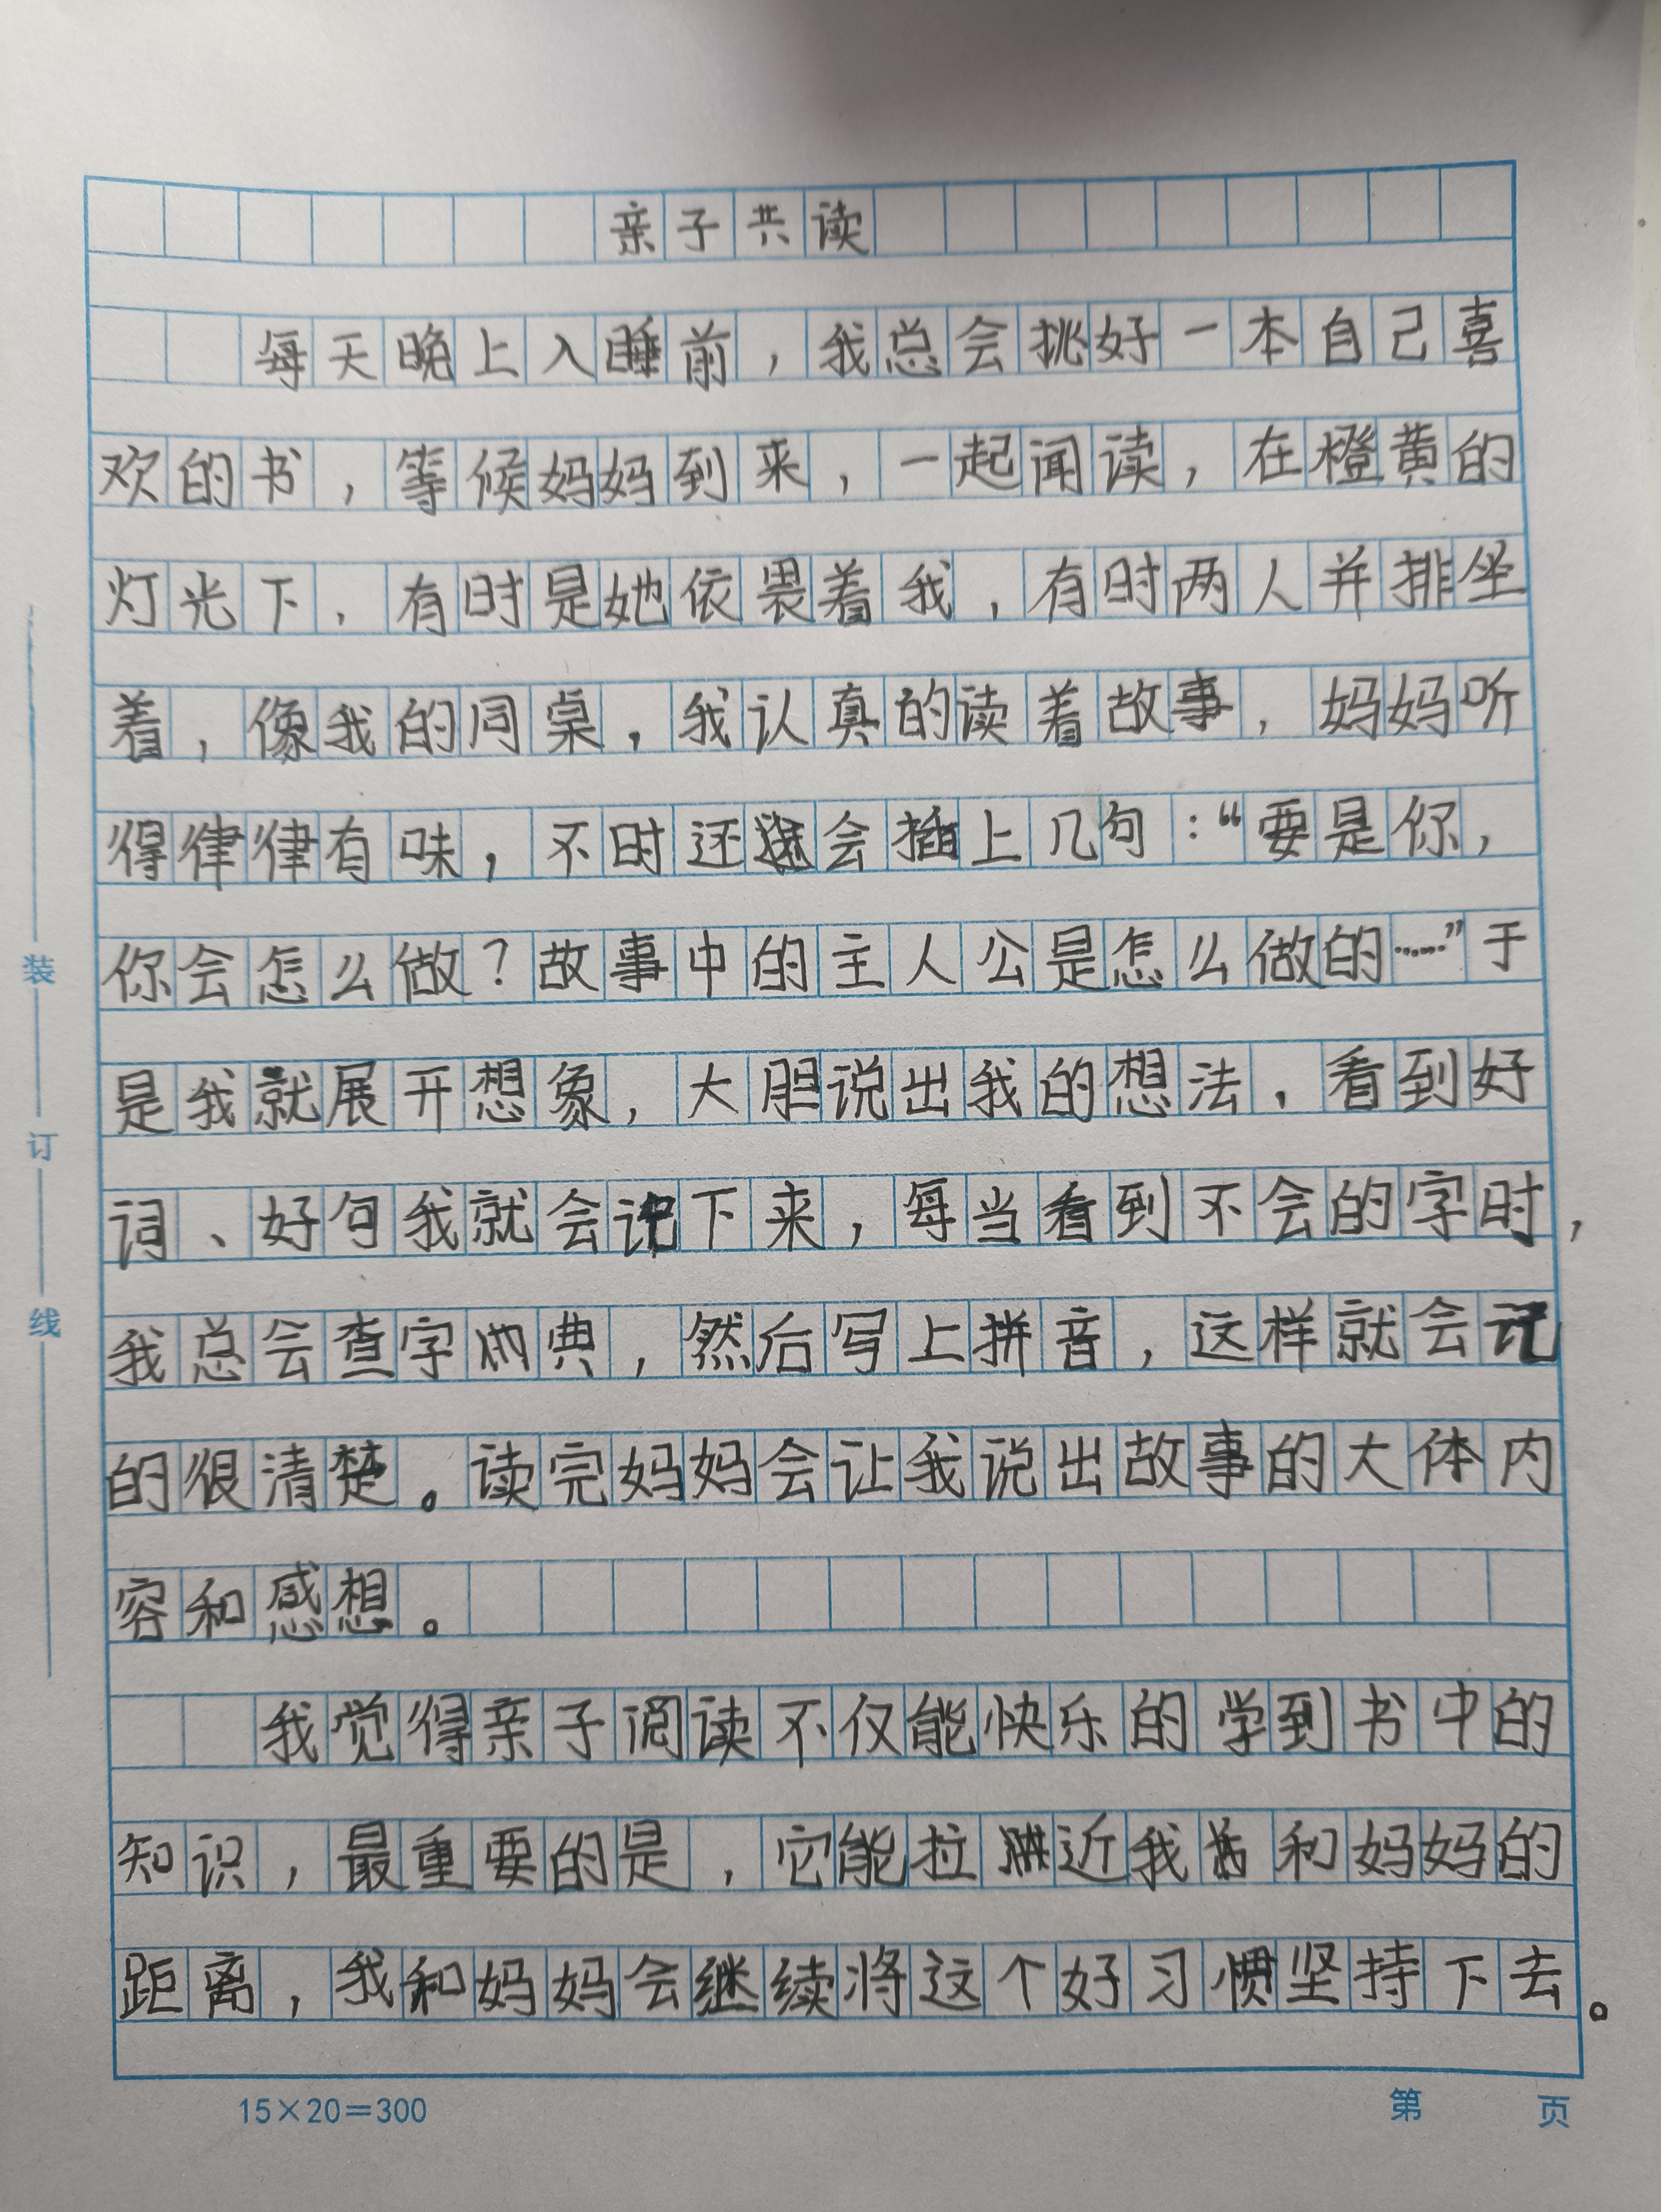 亲子共读
每天晚上入睡前，我总会挑好一本自己喜
欢的书，等候妈妈到来，一起闻读，在橙黄的
灯光下，有时是她依畏着我，有时两人并排坐
着，像我的同桌，我认真的读着故事，妈妈听
得律律有味，不时还会插上几句：“要是你，
你会怎么做？故事中的主人公是怎么做的……”于
是我就展开想象，大胆说出我的想法，看到好
词、好句我就会记下来，每当看到不会的字时，
我总会查字典，然后写上拼音，这样就会记
的很清楚。读完妈妈会让我说出故事的大体内
容和感想。
我觉得亲子阅读不仅能快乐的学到书中的
知识，最重要的是，它能拉近我和妈妈的
距离，我和妈妈会继续将这个好习惯坚持下去。
装
订
线
15×20=300
第 页